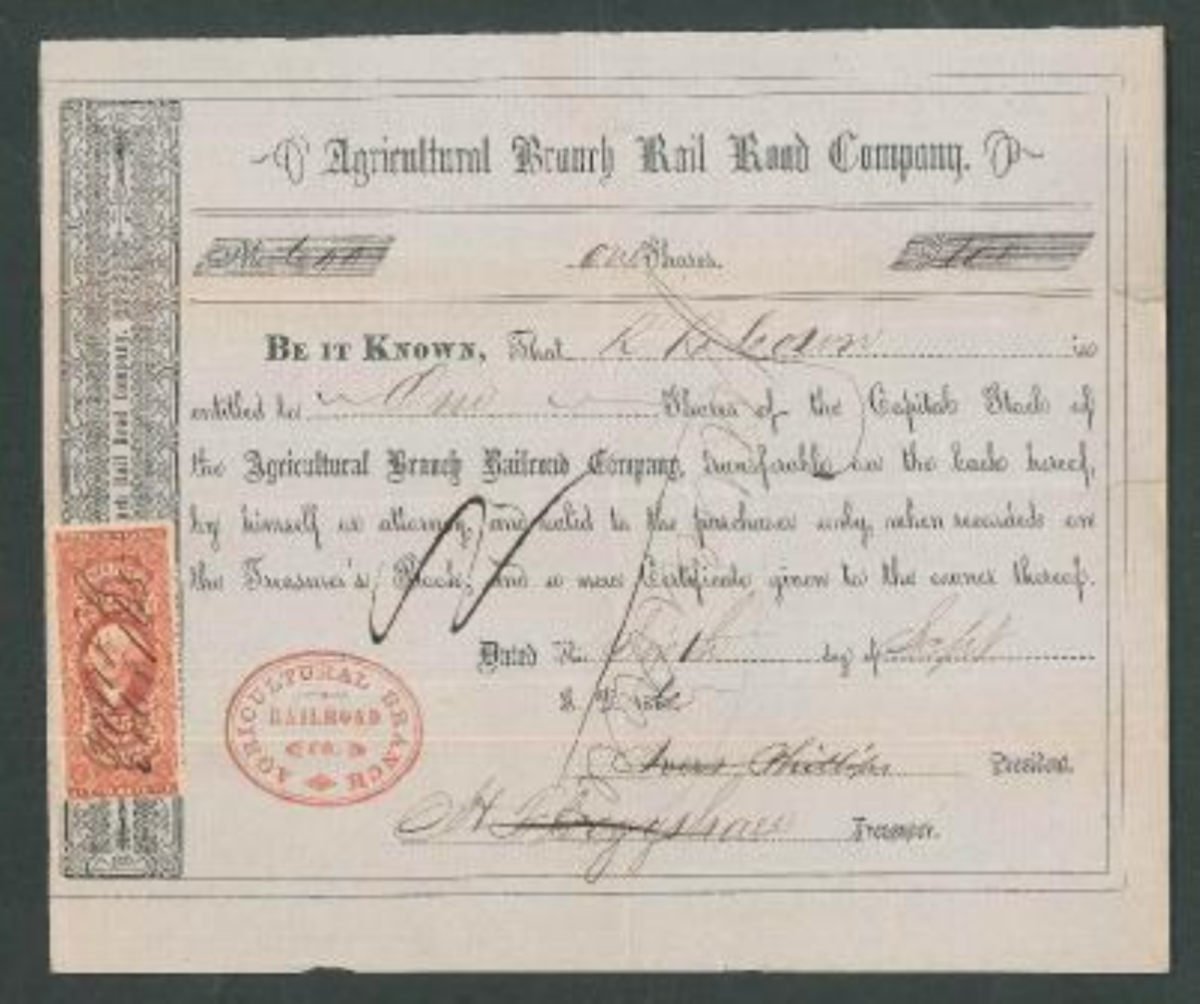 Agricultural Branch Rail Road Company.
No. 600 one Shares. 100
BE IT KNOWN, That is
entitled to One Shares of the Capital Stock of
the Agricultural Branch Railroad Company, transferable on the back hereof,
by himself or attorney, and valid to the purchaser only, when recorded on
the Treasurer's Book, and a new Certificate given to the owner thereof.
Dated the Sixth day of Sept
A. D. 186
Phillips President.
Treasurer.
AGRICULTURAL BRANCH
RAILROAD
CO.
Rail Road Company.